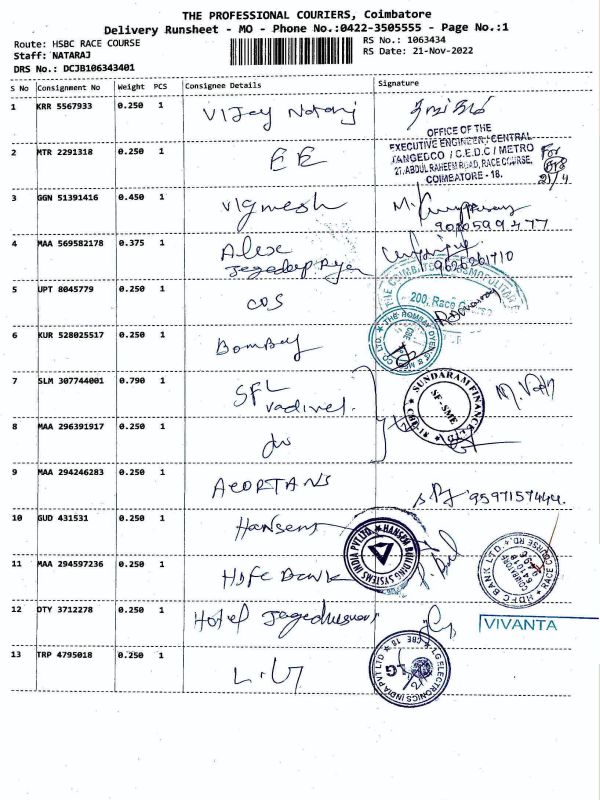 THE PROFESSIONAL COURIERS, Coimbatore
Delivery Runsheet - MO - Phone No.:0422-3505555 - Page No.:1
Route: HSBC RACE COURSE
RS No.: 1063434
Staff: NATARAJ
RS Date: 21-Nov-2022
DRS No.: DCJB106343401
S No Consignment No Weight PCS Consignee Details Signature
1 KRR 5567933 0.250 1 Vijay Nataraj
OFFICE OF THE
EXECUTIVE ENGINEER / CENTRAL
TANGEDCO / C.E.D.C / METRO
27, ABDUL RAHEEM ROAD, RACE COURSE,
COIMBATORE - 18.
For
2 MTR 2291318 0.250 1 EE
3 GGN 51391416 0.450 1 Vigmesh
4 MAA 569582178 0.375 1 Alex
9626261710
5 UPT 8045779 0.250 1 COS
200, Race
6 KUR 528025517 0.250 1 Bombay
THE BOMBAY DYEING &
7 SLM 307744001 0.790 1 SFL
vadivel.
SUNDARAM FINANCE LTD
SF-SME
8 MAA 296391917 0.250 1
9 MAA 294246283 0.250 1
9597157444
10 GUD 431531 0.250 1 Hansen
HANSEN BUILDING SYSTEMS INDIA PVT LTD
11 MAA 294597236 0.250 1 Hdfc Bank
HDFC BANK LTD
RACE COURSE RD
COIMBATORE
12 DTY 3712278 0.250 1 Hotel
VIVANTA
13 TRP 4795018 0.250 1 L.G
LG ELECTRONICS INDIA PVT LTD
CBE 18
LG